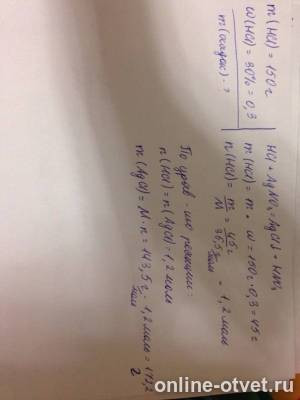 m(HCl) = 150 г
w(HCl) = 30% = 0,3
m(осадок) - ?
HCl + AgNO₃ = AgCl↓ + HNO₃
m(HCl) = m · w = 150г · 0,3 = 45г
n(HCl) = m/M = 45г/36,5г/моль = 1,2 моль
По урав-ию реакции:
n(HCl) = n(AgCl) = 1,2 моль
m(AgCl) = M · n = 143,5 г/моль · 1,2 моль = 172,2 г
online-otvet.ru